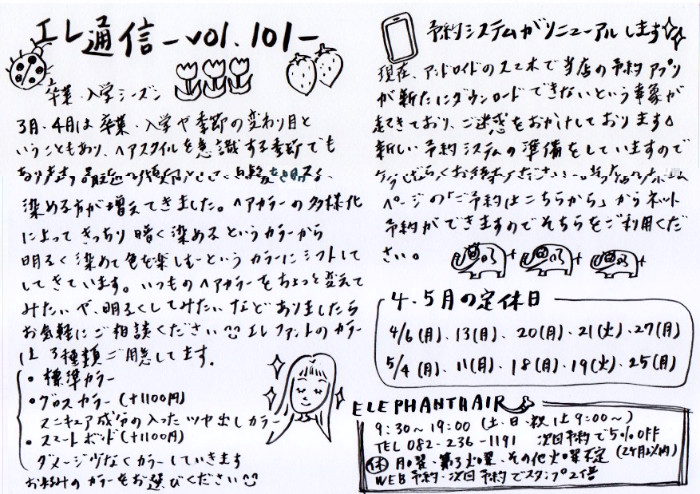 エレ通信 -vol.101-
卒業・入学シーズン
3月・4月は卒業・入学や季節の変わり目と
いうこともあり、ヘアスタイルを意識する季節でも
あります。最近の傾向として、白髪を明るく
染める方が増えてきました。ヘアカラーの多様化
によって きっちり 暗く染める というカラーから
明るく染めて色を楽しむーというカラーにシフトして
してきています。いつものヘアカラーをちょっと変えて
みたいや、明るくしてみたいなどありましたら
お気軽にご相談ください エレファントのカラー
は3種類ご用意してます。
・標準カラー
・グロスカラー(+1100円)
スキュア成分の入ったツヤ出しカラー
・スマートボンド(+1100円)
ダメージなくカラーしていきます
お好みのカラーをお選びください
予約システムがリニューアルします
現在、アンドロイドのスマホで当店の予約アプリ
が新たにダウンロードできないという事象が
起きており、ご迷惑をおかけしております。
新しい予約システムの準備をしていますので
今しばらくお待ちください。ホーム
ページの「ご予約はこちらから」からネット
予約ができますのでそちらをご利用くだ
さい。
4.5月の定休日
4/6(月)、13(月)、20(月)、21(火)、27(月)
5/4(月)、11(月)、18(月)、19(火)、25(月)
ELEPHANTHAIR
9:30~19:00 (土・日・祝は9:00~)
TEL 082-236-1191 次回予約で5%OFF
(2ヶ月以内)
休 月曜・第3火曜・その他火曜不定
WEB予約・次回予約でスタンプ2倍